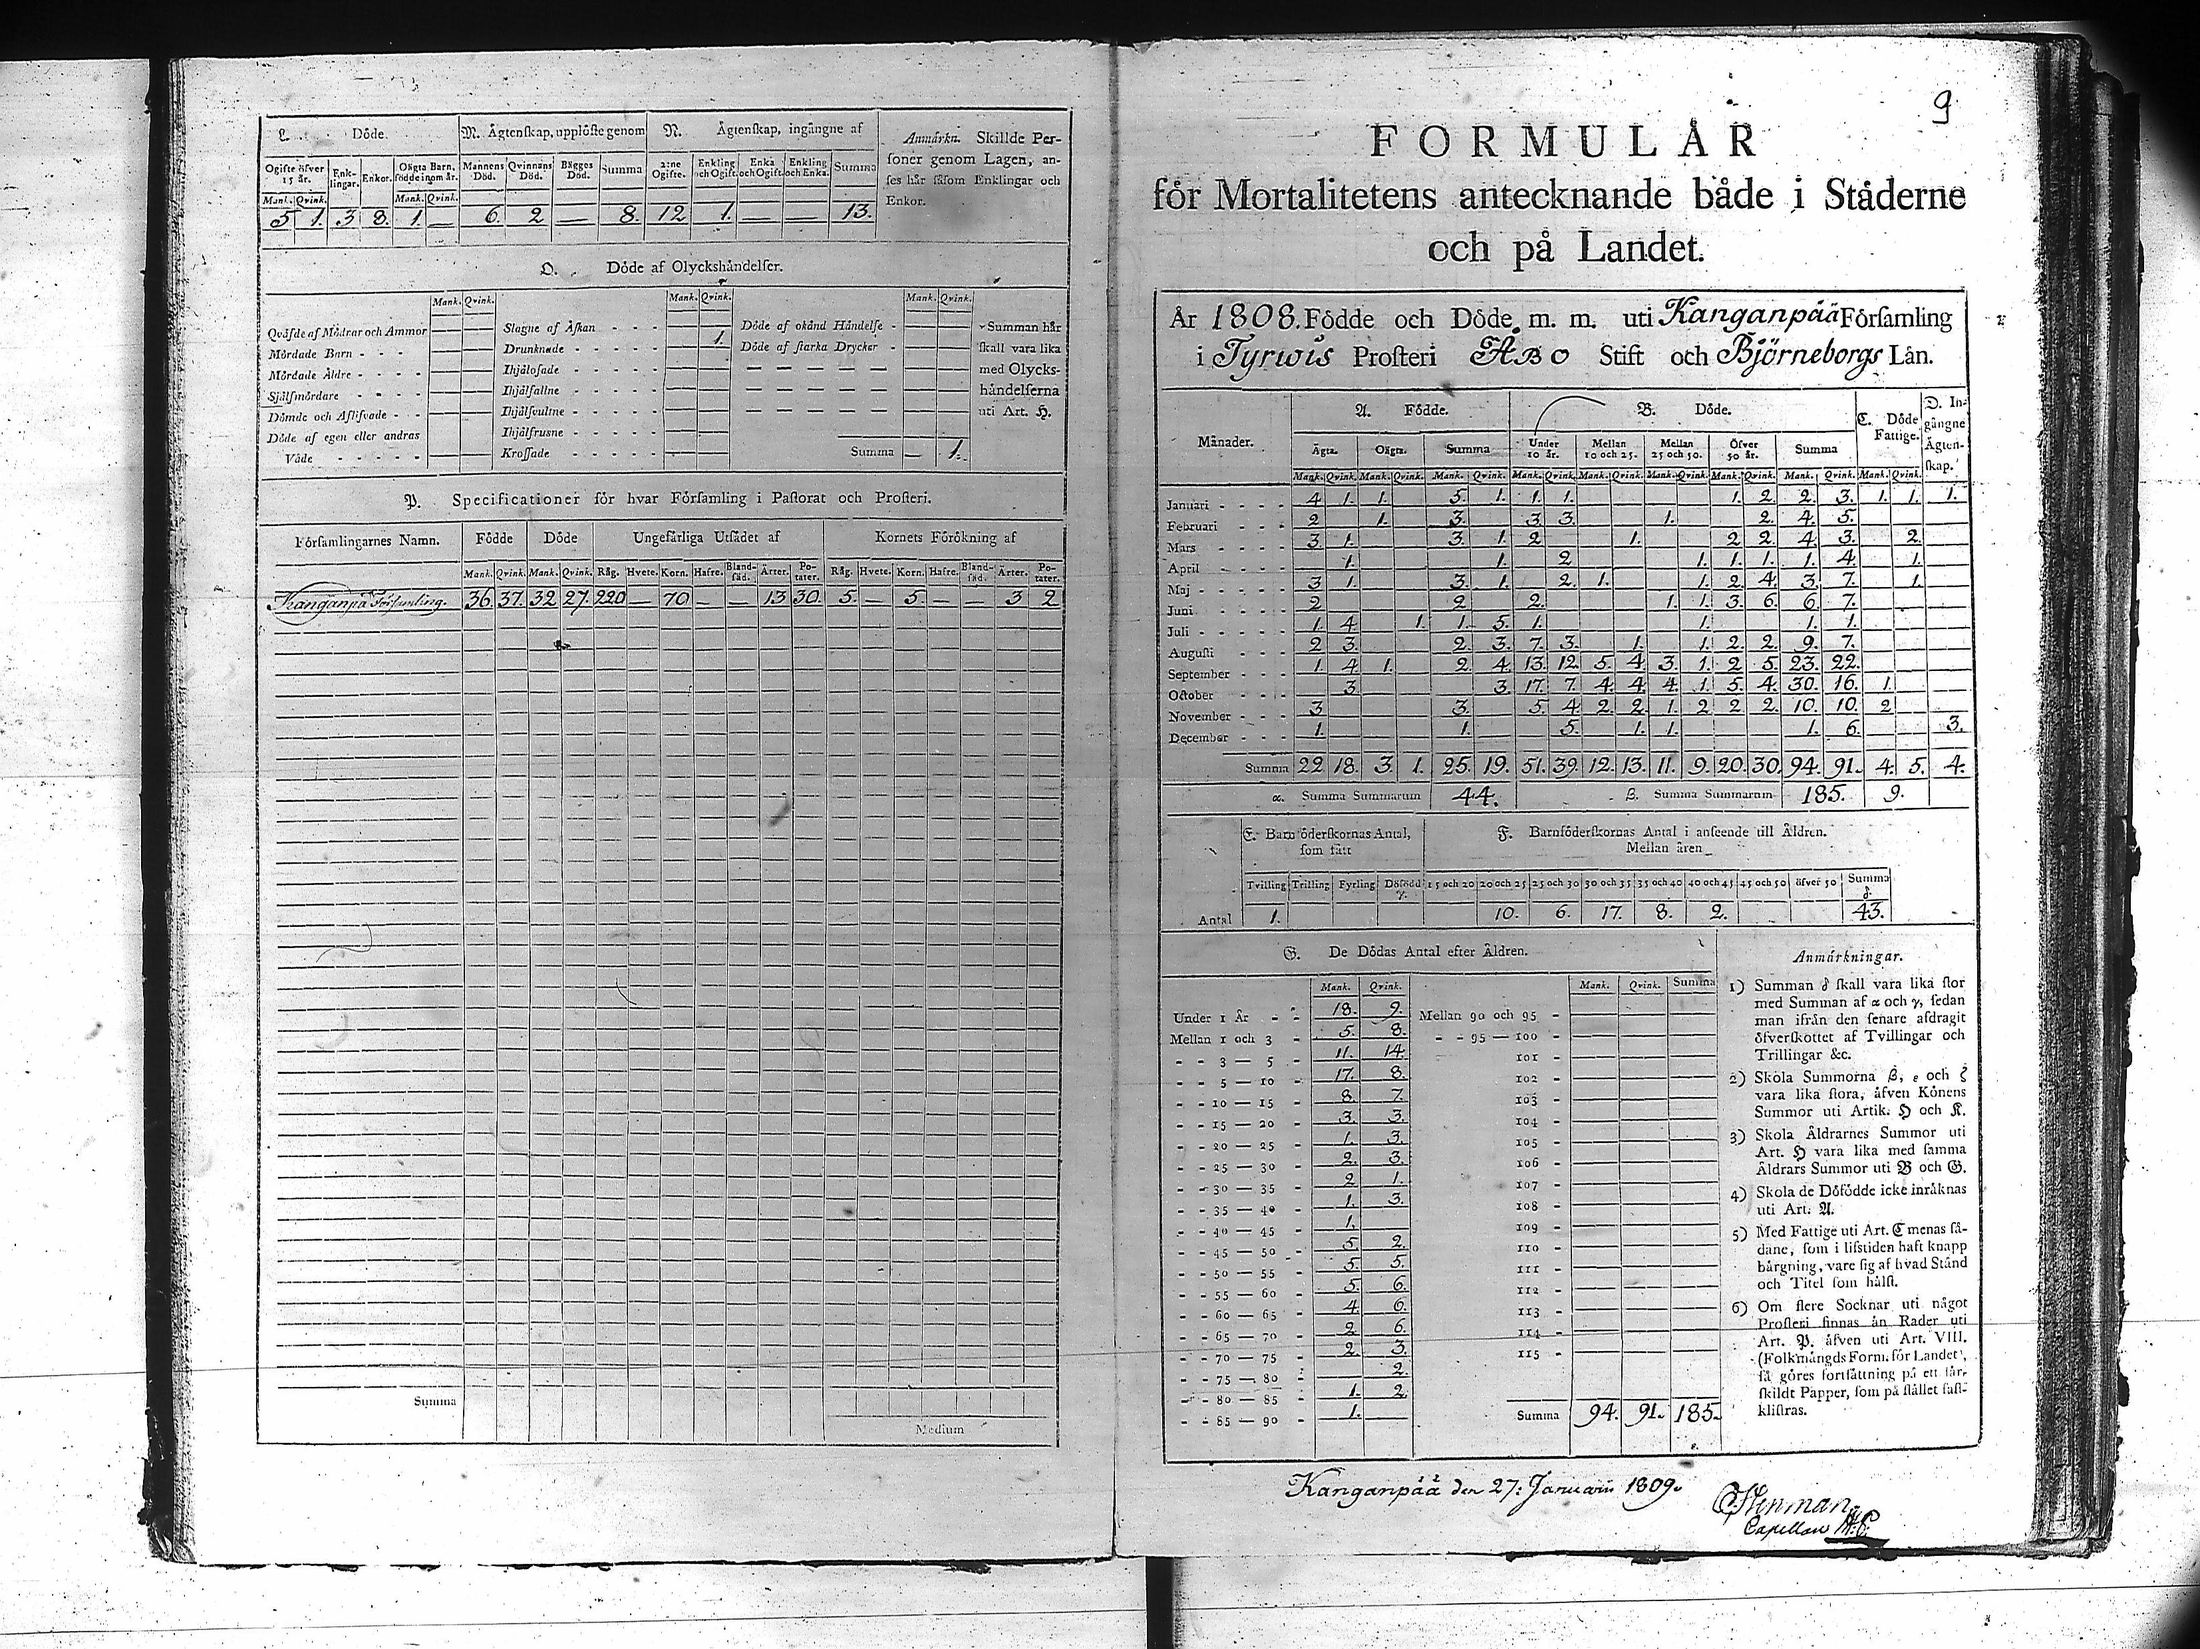 L. Döde. M. Ägtenskap, upplöste genom N. Ägtenskap, ingångne af Anmärkn. Skillde Per-
soner genom Lagen, an-
ses här såsom Enklingar och
Enkor.
Ogifte öfver 15 år. Enk-lingar. Enkor. Oägta Barn, födde inom år. Mannens Död. Qvinnans Död. Bägges Död. Summa 2:ne Ogifte. Enkling och Ogift. Enka och Ogift. Enkling och Enka. Summa
Mank. Qvink. Mank. Qvink.
5 1. 3 8. 1. — 6. 2 — 8. 12 1. — — 13.
O. Döde af Olyckshändelser.
Mank. Qvink. Mank. Qvink. Mank. Qvink.
Qväfde af Mödrar och Ammor Slagne af Åskan - - - Döde af okänd Händelse - Summan här
Mördade Barn - - - Drunknade - - - - - 1. Döde af starka Drycker - skall vara lika
Mördade Äldre - - - - Ihjälosade - - - - - med Olycks-
Sjelfmördare - - - - Ihjälfallne - - - - - händelserna
Dömde och Aflifvade - - Ihjälsvultne - - - - - uti Art. H.
Döde af egen eller andras Ihjälfrusne - - - - -
Våde - - - - - Krossade - - - - - Summa — 1.
P. Specificationer för hvar Församling i Pastorat och Prosteri.
Församlingarnes Namn. Födde Döde Ungefärliga Utsädet af Kornets Förökning af
Mank. Qvink. Mank. Qvink. Råg. Hvete. Korn. Hafre. Bland-säd. Ärter. Po-tater. Råg. Hvete. Korn. Hafre. Bland-säd. Ärter. Po-tater.
Kanganpä Församling. 36. 37. 32 27. 220 — 70 — — 13 30. 5. — 5. — — 3 2
Summa
Medium
9
FORMULÄR
för Mortalitetens antecknande både i Städerne
och på Landet.
År 1808. Födde och Döde m. m. uti Kanganpää Församling
i Tyrwis Prosteri ÅBO Stift och Björneborgs Län.
Månader. A. Födde. B. Döde. C. Döde Fattige. D. In-gångne Ägten-skap.
Ägta. Oägta. Summa Under 10 år. Mellan 10 och 25. Mellan 25 och 50. Öfver 50 år. Summa
Mank. Qvink. Mank. Qvink. Mank. Qvink. Mank. Qvink. Mank. Qvink. Mank. Qvink. Mank. Qvink. Mank. Qvink. Mank. Qvink.
Januari - - - - 4 1. 1. 5. 1. 1. 1. 1. 2. 2. 3. 1. 1. 1.
Februari - - - - 2 1. 3. 3. 3. 1. 2. 4. 5.
Mars - - - - 3. 1. 3. 1. 2 1. 2 2. 4. 3. 2.
April - - - - 1. 1. 2 1. 1. 1. 1. 4. 1.
Maj - - - - 3 1. 3. 1. 2. 1. 1. 2. 4. 3. 7. 1.
Juni - - - - 2 2 2. 1. 1. 3. 6. 6. 7.
Juli - - - - 1. 4. 1. 1. 5. 1. 1. 1. 1.
Augusti - - - - 2 3. 2. 3. 7. 3. 1. 1. 2. 2. 9. 7.
September - - - 1. 4 1. 2 4. 13. 12. 5. 4. 3. 1. 2 5. 23. 22.
October - - - 3. 3. 17. 7. 4. 4. 4. 1. 5. 4. 30. 16. 1.
November - - - 3 3. 5. 4. 2. 2. 1. 2 2 2. 10. 10. 2
December - - - 1. 1. 5. 1. 1. 1. 6. 3.
Summa 22 18. 3. 1. 25. 19. 51. 39. 12. 13. 11. 9. 20. 30. 94. 91. 4. 5. 4.
α. Summa Summarum 44. β. Summa Summarum 185. 9.
E. Barnföderskornas Antal, som fått F. Barnföderskornas Antal i anseende till Åldren.
Mellan åren
Tvilling Trilling Fyrling Döfödd γ. 15 och 20 20 och 25 25 och 30 30 och 35 35 och 40 40 och 45 45 och 50 öfver 50 Summa δ.
Antal 1. 10. 6. 17. 8. 2. 43.
G. De Dödas Antal efter Åldren.
Mank. Qvink. Mank. Qvink. Summa
Under 1 År - - 18. 9. Mellan 90 och 95 -
Mellan 1 och 3 - 5. 8. - - 95 — 100 -
- - 3 — 5 - 11. 14. 101 -
- - 5 — 10 - 17. 8. 102 -
- - 10 — 15 - 8. 7. 103 -
- - 15 — 20 - 3. 3. 104 -
- - 20 — 25 - 1. 3. 105 -
- - 25 — 30 - 2. 3. 106 -
- - 30 — 35 - 2 1. 107 -
- - 35 — 40 - 1. 3. 108 -
- - 40 — 45 - 1. 109 -
- - 45 — 50 - 5. 2. 110 -
- - 50 — 55 - 5. 5. 111 -
- - 55 — 60 - 5. 6. 112 -
- - 60 — 65 - 4. 6. 113 -
- - 65 — 70 - 2 6. 114 -
- - 70 — 75 - 2. 3. 115 -
- - 75 — 80 - 2.
- - 80 — 85 - 1. 2.
- - 85 — 90 - 1. Summa 94. 91. 185.
ε.
Anmärkningar.
1) Summan δ skall vara lika stor
med Summan af α och γ, sedan
man ifrån den senare afdragit
öfverskottet af Tvillingar och
Trillingar &c.
2) Skola Summorna β, ε och ζ
vara lika stora, äfven Könens
Summor uti Artik. H och K.
3) Skola Åldrarnes Summor uti
Art. H vara lika med samma
Åldrars Summor uti B och G.
4) Skola de Döfödde icke inräknas
uti Art. A.
5) Med Fattige uti Art. C menas så-
dane, som i lifstiden haft knapp
bärgning, vare sig af hvad Stånd
och Titel som hälst.
6) Om flere Socknar uti något
Prosteri finnas än Rader uti
Art. P. äfven uti Art. VIII.
(Folkmängds Form. för Landet),
så göres fortsättning på ett sär-
skildt Papper, som på stället fast-
klistras.
Kanganpää den 27: Januarii 1809.
Stenman.
Capellan